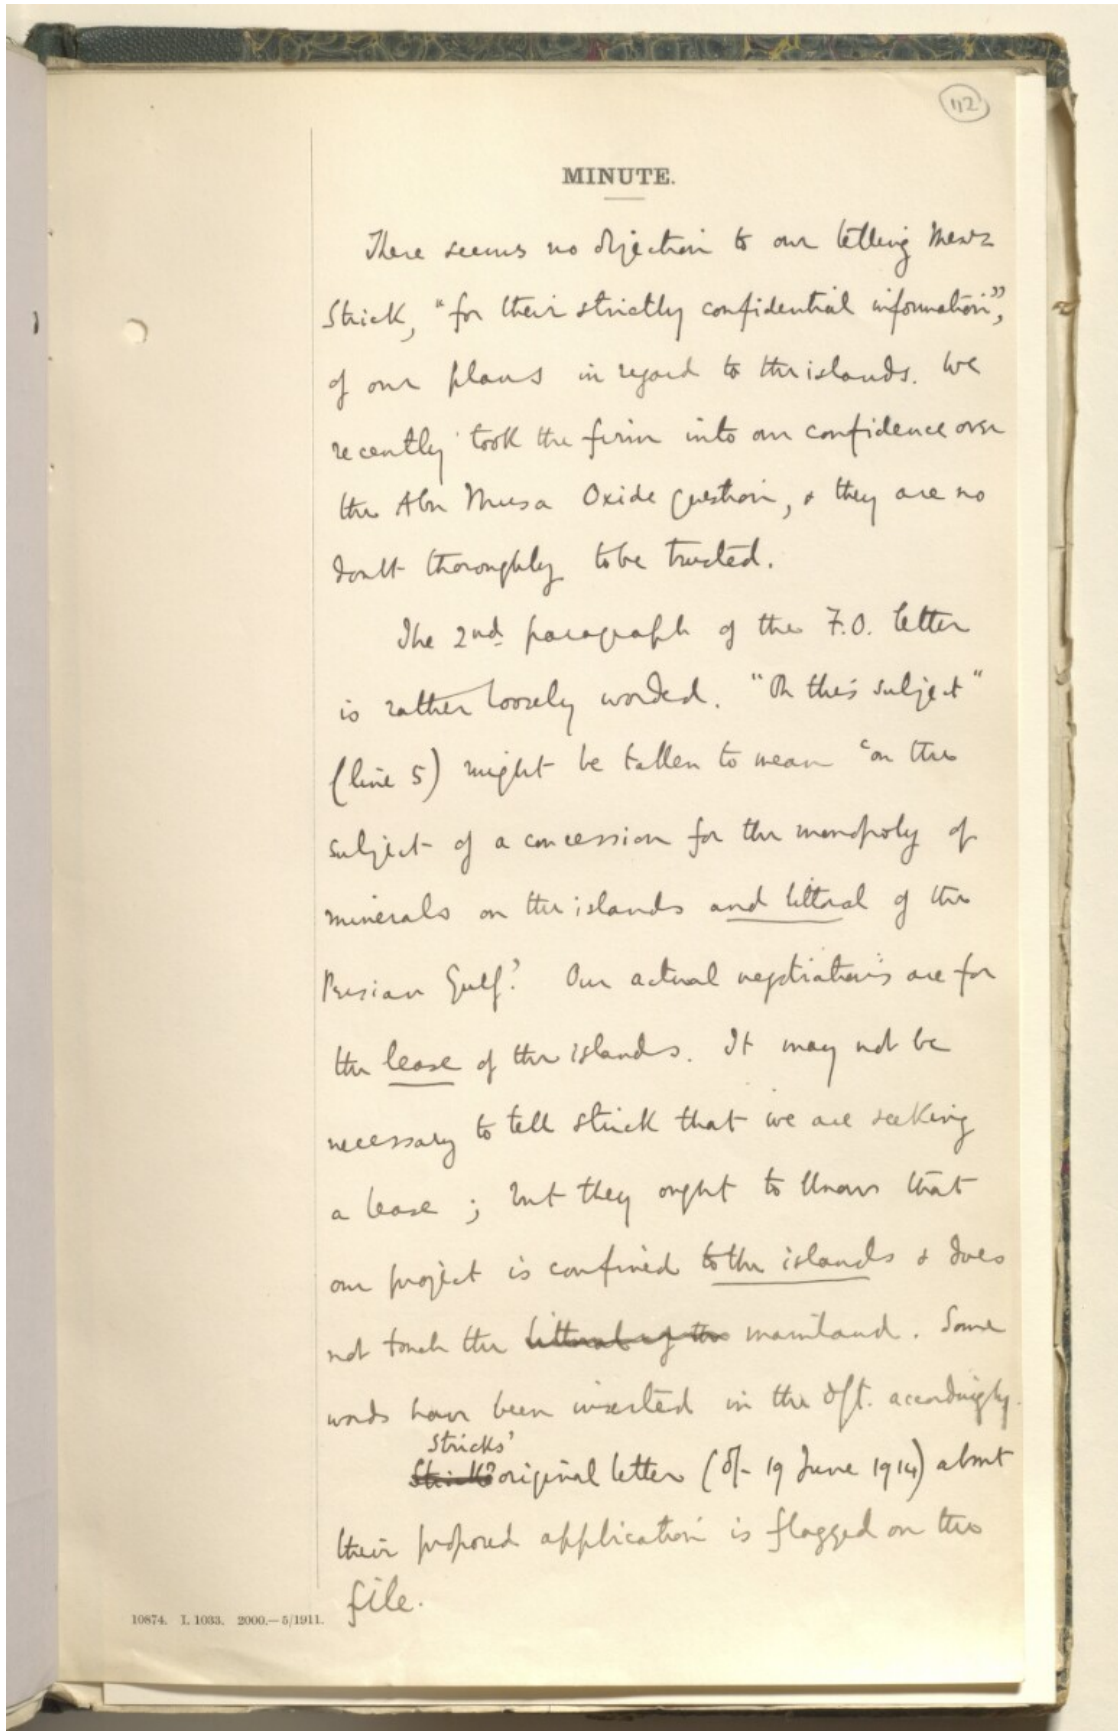 112
MINUTE.
There seems no objection to our telling Messrs
Strick, "for their strictly confidential information",
of our plans in regard to the islands. We
recently took the firm into our confidence over
the Abu Musa Oxide question, & they are no
doubt thoroughly to be trusted.
The 2nd. paragraph of the F.O. letter
is rather loosely worded. "On this subject"
(line 5) might be taken to mean 'on the
subject of a concession for the monopoly of
minerals on the islands and littoral of the
Persian Gulf'. Our actual negotiations are for
the lease of the islands. It may not be
necessary to tell Strick that we are seeking
a lease ; but they ought to know that
our project is confined to the islands & does
not touch the littoral of the mainland. Some
words have been inserted in the dft. accordingly.
Stricks'
Strick's original letter (of 19 June 1914) about
their proposed application is flagged on the
file.
10874. I. 1033. 2000.—5/1911.